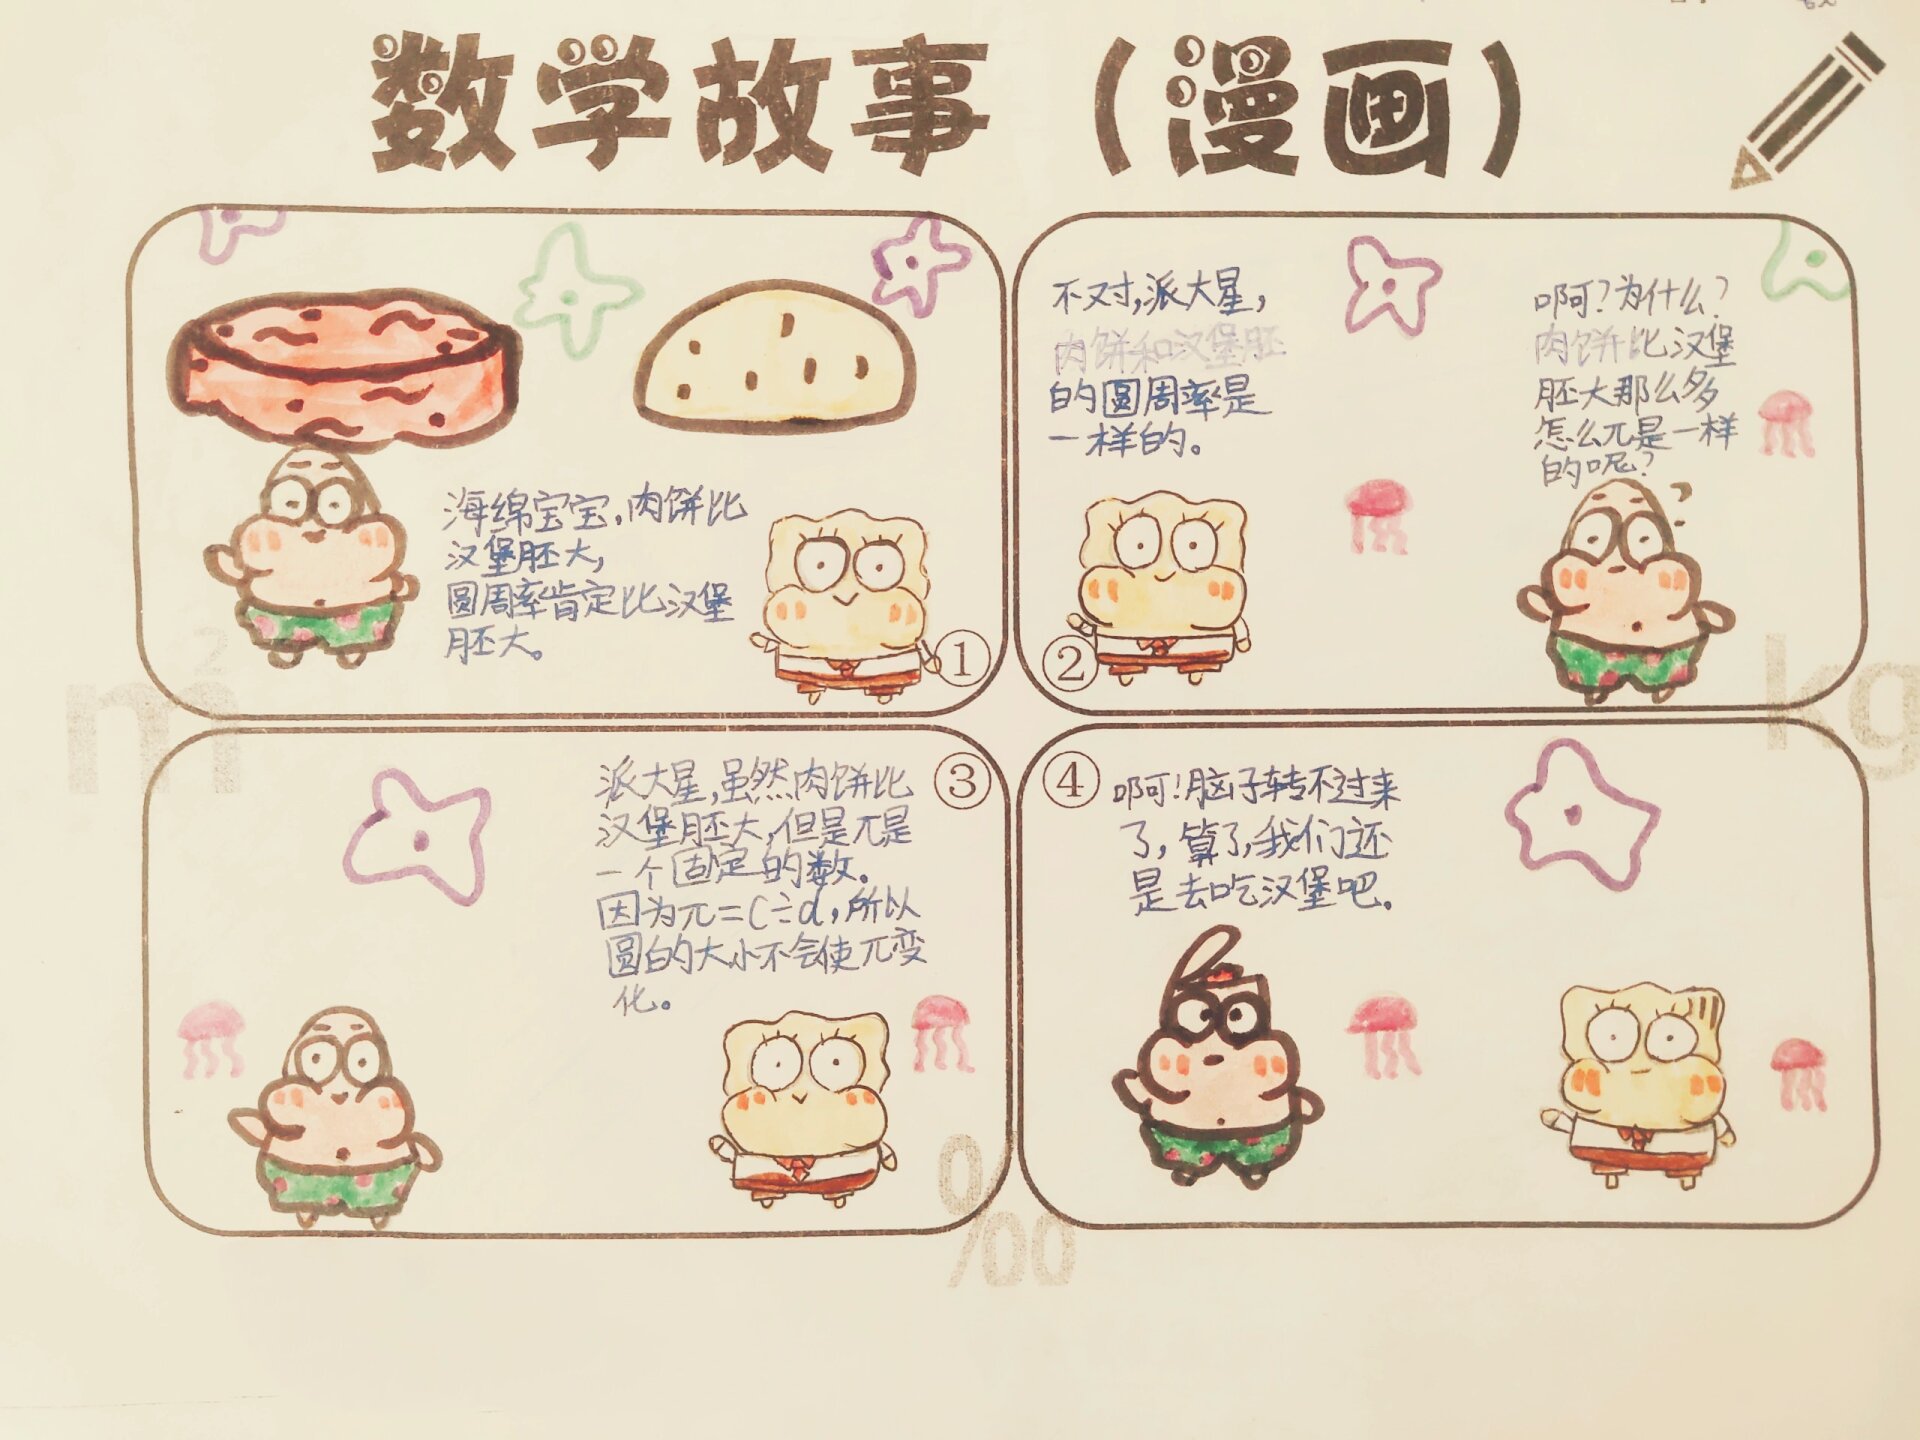 数学故事（漫画）
海绵宝宝，肉饼比
汉堡胚大，
圆周率肯定比汉堡
胚大。
①
不对，派大星，
肉饼和汉堡胚
的圆周率是
一样的。
啊？为什么？
肉饼比汉堡
胚大那么多
怎么π是一样
的呢？
?
②
派大星，虽然肉饼比
汉堡胚大，但是π是
一个固定的数。
因为π=C÷d，所以
圆的大小不会使π变
化。
③
④
啊！脑子转不过来
了，算了，我们还
是去吃汉堡吧。
m²
kg
‰